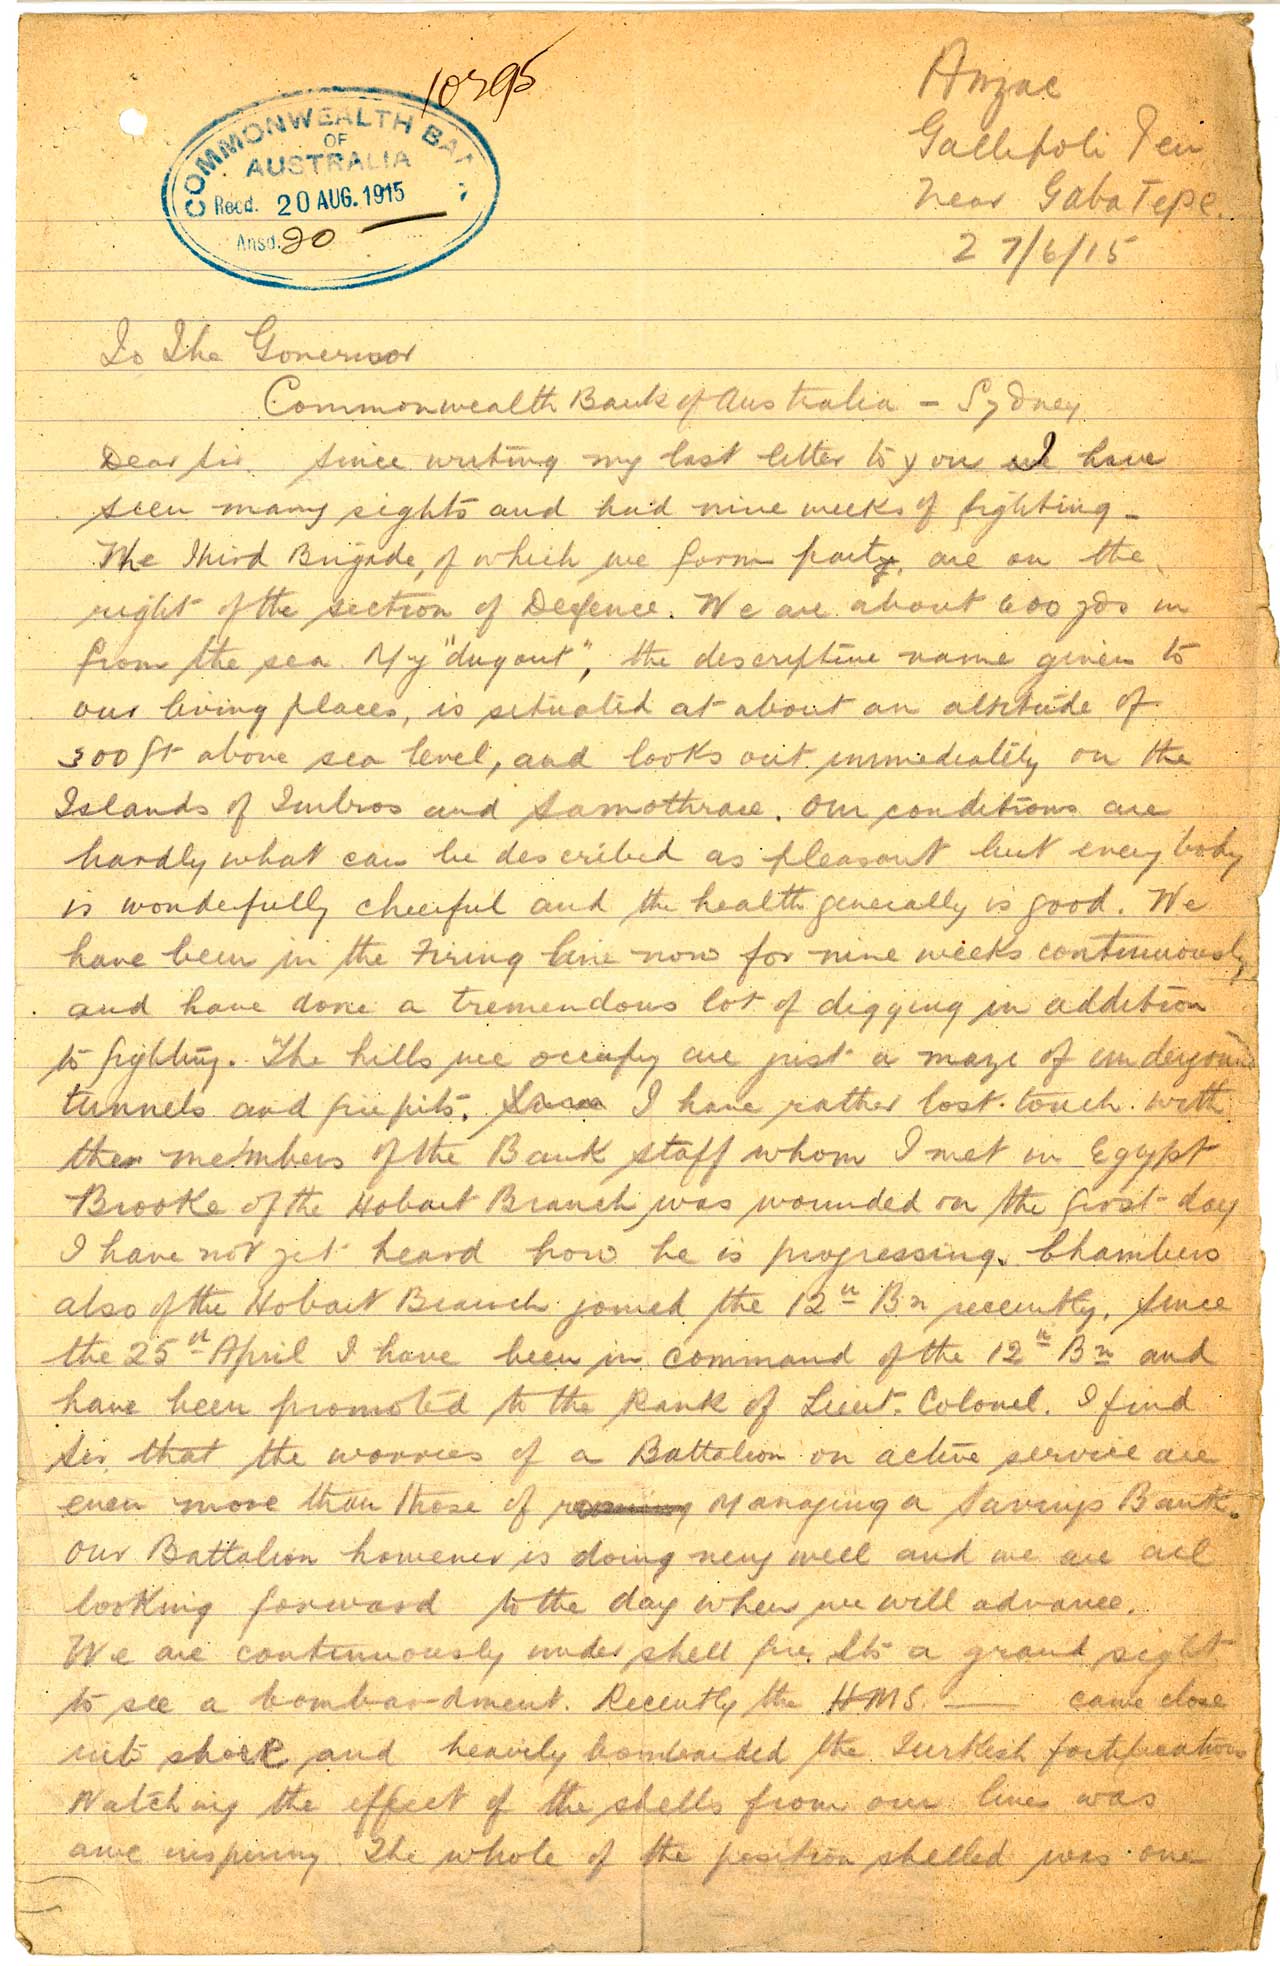 10295
COMMONWEALTH BA
OF
AUSTRALIA
Recd. 20 AUG. 1915
Ansd. 20
Anzac
Gallipoli Pen
Near Gaba Tepe.
27/6/15
To The Governor
Commonwealth Bank of Australia - Sydney
Dear Sir. Since writing my last letter to you I have
seen many sights and had nine weeks of fighting -
The Third Brigade, of which we form party, are on the
right of the section of Defence. We are about 600 yds in
from the sea. My "dugout", the descriptive name given to
our living places, is situated at about an altitude of
300 ft above sea level, and looks out immediately on the
Islands of Imbros and Samothrace. Our conditions are
hardly what can be described as pleasant but every body
is wonderfully cheerful and the health generally is good. We
have been in the Firing line now for nine weeks continuously
and have done a tremendous lot of digging in addition
to fighting. The hills we occupy are just a maze of underground
tunnels and firepits. I have rather lost touch with
the members of the Bank staff whom I met in Egypt
Brooke of the Hobart Branch was wounded on the first day
I have not yet heard how he is progressing. Chambers
also of the Hobart Branch joined the 12th Bn recently. Since
the 25th April I have been in command of the 12th Bn and
have been promoted to the Rank of Lieut. Colonel. I find
Sir that the worries of a Battalion on active service are
even more than those of Managing a Savings Bank.
Our Battalion however is doing very well and we are all
looking forward to the day when we will advance.
We are continuously under shell fire. Its a grand sight
to see a bombardment. Recently the HMS —— came close
into shore and heavily bombarded the Turkish fortifications
Watching the effect of the shells from our lines was
awe inspiring. The whole of the position shelled was one